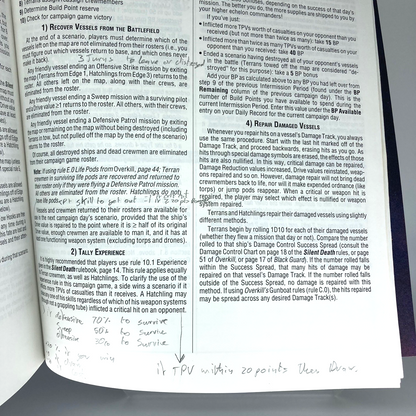 9) Determine Build Point reserve
10) Check for campaign game victory
1) RECOVER VESSELS FROM THE BATTLEFIELD
At the end of a scenario, players must determine which of the
vessels left on the map are not eliminated from their rosters (i.e., you
figure out which vessels return to base, and which ones never
make it back).
3 turns to leave or destroyed
Any friendly vessel ending an Offensive Strike mission by exiting
the map (Terrans from Edge 1, Hatchlings from Edge 3) returns to the
roster. All others left on the map, along with their crews, are
eliminated from the roster.
Any friendly vessel ending a Sweep mission with a surviving pilot
value ≥1 returns to the roster. All others, with their crews,
eliminated.
Any friendly vessel ending a Defensive Patrol mission by exiting
the map or remaining on the map without being destroyed (including
torn in low, but not pulled off the map by the end of the scenario)
returns to the roster.
Of course, all destroyed ships and dead crewmen are eliminated
from the campaign game roster.
Note: If using rule E.0 Life Pods from Overkill, page 44; Terran
crewmen in surviving life pods are recovered and returned to
the roster only if they were flying a Defensive Patrol mission.
All others are eliminated from the roster. Hatchlings do not
Vessels and crewmen returned to their rosters are available for
use in the next campaign day's scenario, provided that the ship's
value is repaired to the point where it is ≥ half of its original
value, enough crewmen are available to man it, and it has at
functioning weapon system (excluding torps and drones).
2) TALLY EXPERIENCE
It is highly recommended that players use rule 10.1 Experience
Silent Death rulebook, page 14. This rule applies equally
Terran crewmen, as well as Hatchlings. To clarify the use of the
experience rule in this campaign game, a side wins a scenario if it
more TPVs of casualties than it receives. A Hatchling may
one of his skills regardless of which of his weapon systems
through a grappling tube) inflicted a critical hit on an opponent.
defensive 70% to survive
50% to survive
offensive 20% to survive
mission. The better you do, the more BP you receive
your higher echelon commanders!:
if you've just:
• Inflicted more TPVs worth of casualties on your opponent than you
received (but not more than twice as many): take 15 BP
• Inflicted more than twice as many TPVs worth of casualties on your
opponent than you received: take 40 BP
• Ended a scenario having destroyed all of your opponent's vessels
in the battle (Terrans towed off the map are considered "de-
stroyed" for this purpose): take a 5 BP bonus
Add your BP as calculated above to any BP you had left over from
step 9 of the previous Intermission Period (found under the BP
Remaining column of the previous campaign day). This is the
number of Build Points you have available to spend during the
current Intermission Period. Enter this value under the BP Available
entry on your Daily Record for the current campaign day.
4) REPAIR DAMAGED VESSELS
Whenever you repair hits on a vessel's Damage Track, you always
use the same procedure. Start with the last hit marked off of the
Damage Track, and proceed backwards, erasing hits as you go. As
hits through special damage symbols are erased, the effects of those
hits are also nullified. In this way, critical damage can be repaired,
Damage Reduction values increased, Drive values reinstated, weap-
ons repaired and so on. However, damage repair will not bring dead
crewmembers back to life, nor will it make expended ordnance (like
torps) or jump pods reappear. When a critical or weapon hit is
repaired, the player may select which effect is nullified or weapon
system repaired.
Terrans and Hatchlings repair their damaged vessels using slightly
different methods.
Terrans begin by rolling 1D10 for each of their damaged vessels
(whether they flew a mission that day or not). Compare the number
rolled to that ship's Damage Control Success Spread (consult the
Damage Control Chart on page 18 of the Silent Death rules, or page
51 of Overkill, or page 17 of Black Guard). If the number rolled falls
within the Success Spread, that many hits of damage may be
repaired on that vessel's Damage Track. If the number rolled falls
outside of the Success Spread, no damage is repaired with this
method. If using Overkill's Gunboat rules (rule C.0), the hits repaired
may be spread across any desired Damage Track(s).
if TPV within 20 points then Draw.